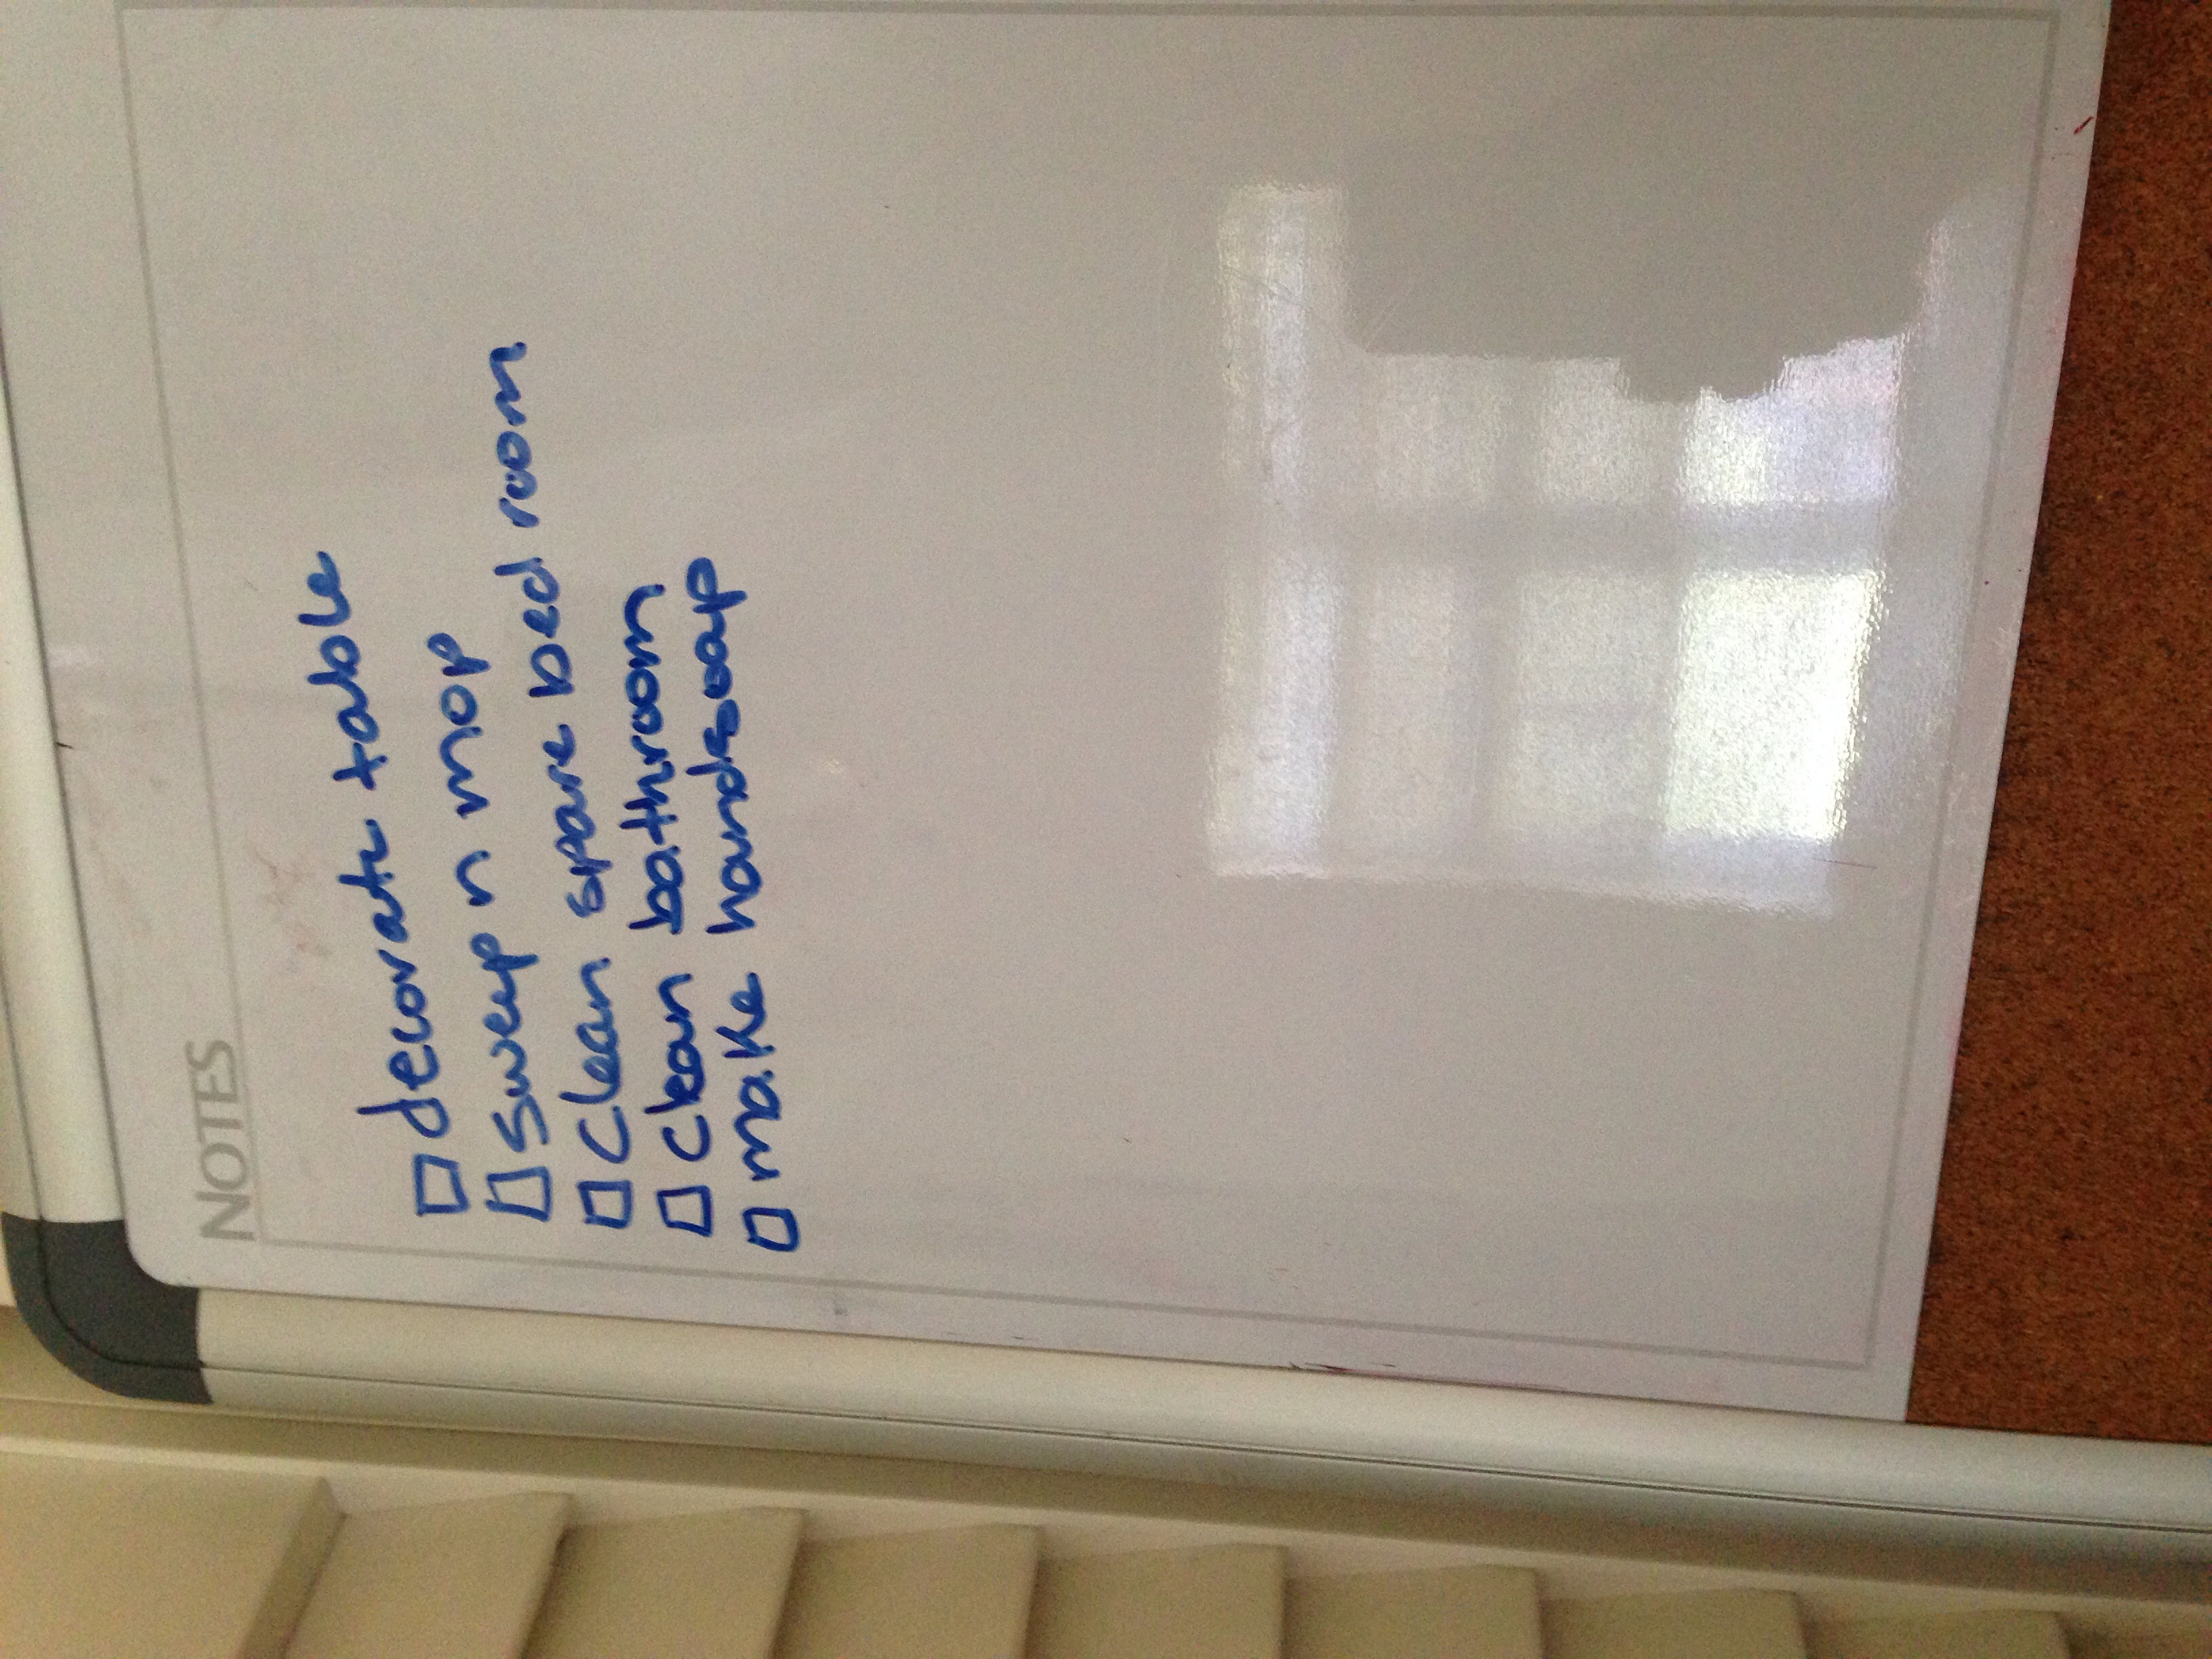 NOTES
decorate table
sweep n mop
Clean spare bed room
Clean bathroom
make handsoap